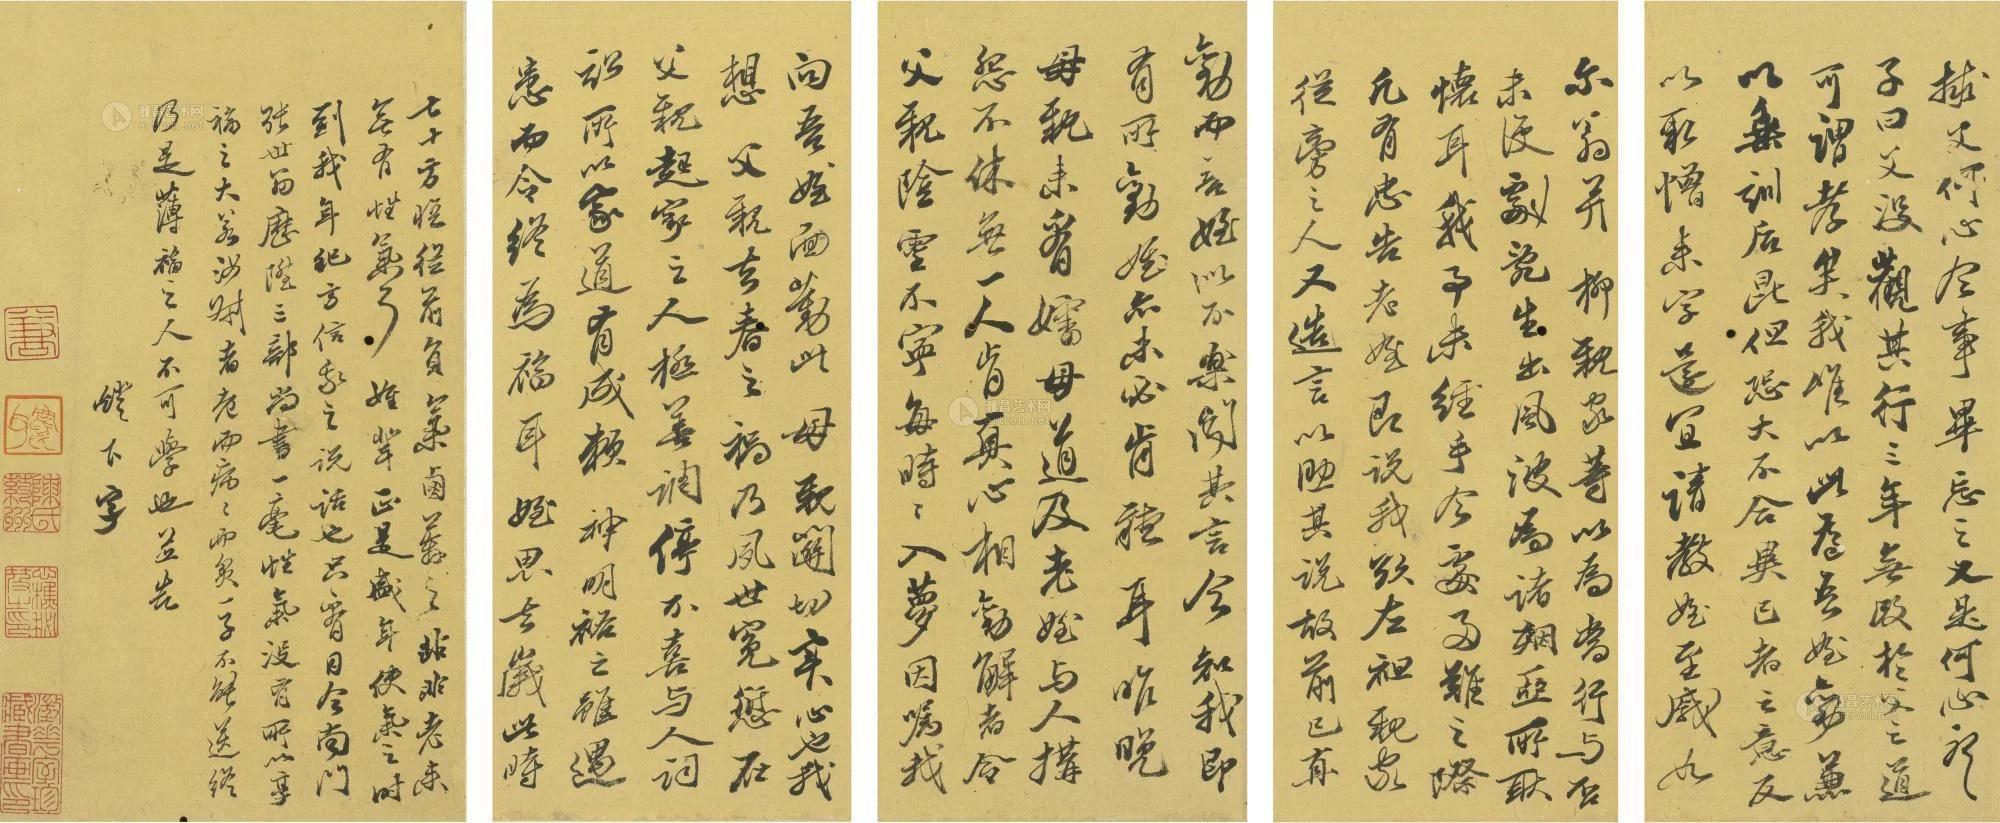 父何心今事畢忘之又是何心
子曰父没觀其行三年無改於父之道
可謂孝矣我惟以此為吾姪勸兼
以垂訓后昆但恐大不合與已者之意反
以取憎来字還宜請教姪至感九
尔翁并 柳親家等以為當行与否
未便劇説生出風波為諸姻 所
懷耳我事未經手今處多難之際
凡有忠告老姪即説我欺左祖親家
從旁之人又造言以助其説故前已有
勸而言姪似不樂聞其言今知我即
有所勸姪亦未必肯聽耳昨晚
母親未育嬸母道及老姪与人搆
怨不休無一人肯真心相勸解者令
父親陰靈不寧每時時入夢因囑我
向吾姪面勸此 母親關切実心也我
想 父親去春之禍乃夙世冤愆在
父親起家之人極善調停不喜与人詞
訟所以家道有成賴 神明裕之雖遇
患而令終為福耳 姪思去歲此時
七十方悟從前負氣 之非老未
無有性氣了 姪輩正是盛年使氣之时
到我年紀方信我之説話也只看目今南門
張世翁歷陞三部尚書一毫性氣没有所以享
福之大若 财者老而病病而矣一子不能送終
乃是薄福之人不可學也並告
燈下字
雅昌艺术网
artron.net